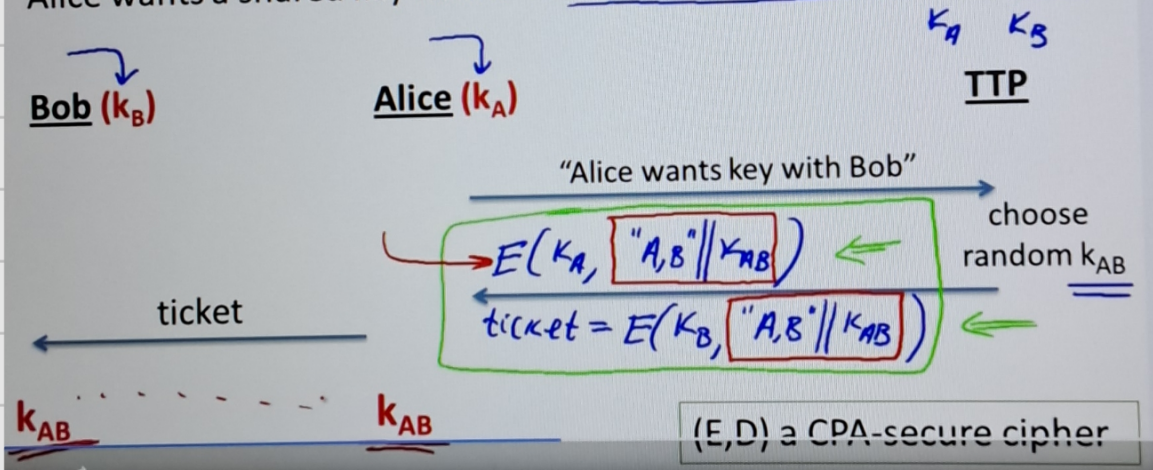 Alice wants a shared
K_A K_B
Bob (k_B) Alice (k_A) TTP
"Alice wants key with Bob"
choose
random k_AB
E(K_A, "A,B" || K_AB)
ticket
ticket = E(K_B, "A,B" || K_AB)
k_AB k_AB
(E,D) a CPA-secure cipher